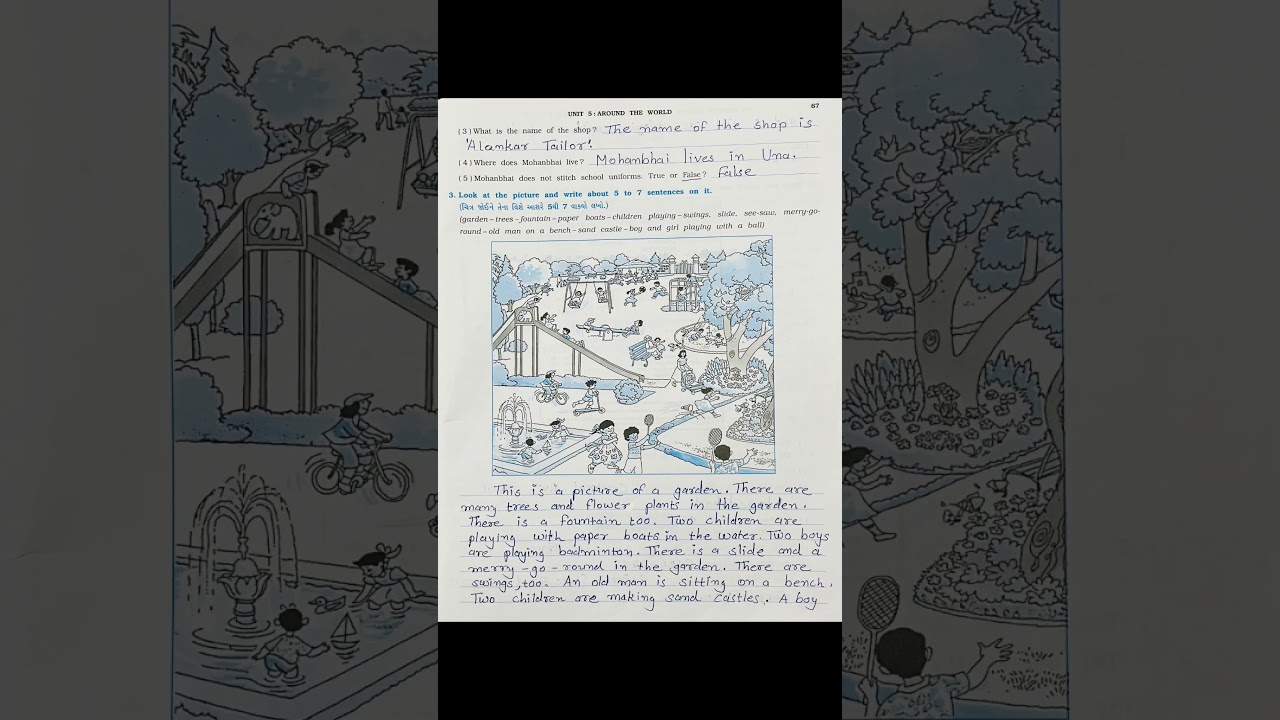 67
UNIT 5 : AROUND THE WORLD
( 3 ) What is the name of the shop ? The name of the shop is
'Alankar Tailor'.
( 4 ) Where does Mohanbhai live ? Mohanbhai lives in Una.
( 5 ) Mohanbhai does not stitch school uniforms. True or False ? False
3. Look at the picture and write about 5 to 7 sentences on it.
(ચિત્ર જોઈને તેના વિશે આશરે 5થી 7 વાક્યો લખો.)
(garden – trees – fountain – paper boats – children playing – swings, slide, see-saw, merry-go-
round – old man on a bench – sand castle – boy and girl playing with a ball)
This is a picture of a garden. There are
many trees and flower plants in the garden.
There is a fountain too. Two children are
playing with paper boats in the water. Two boys
are playing badminton. There is a slide and a
merry-go-round in the garden. There are
swings, too. An old man is sitting on a bench.
Two children are making sand castles. A boy